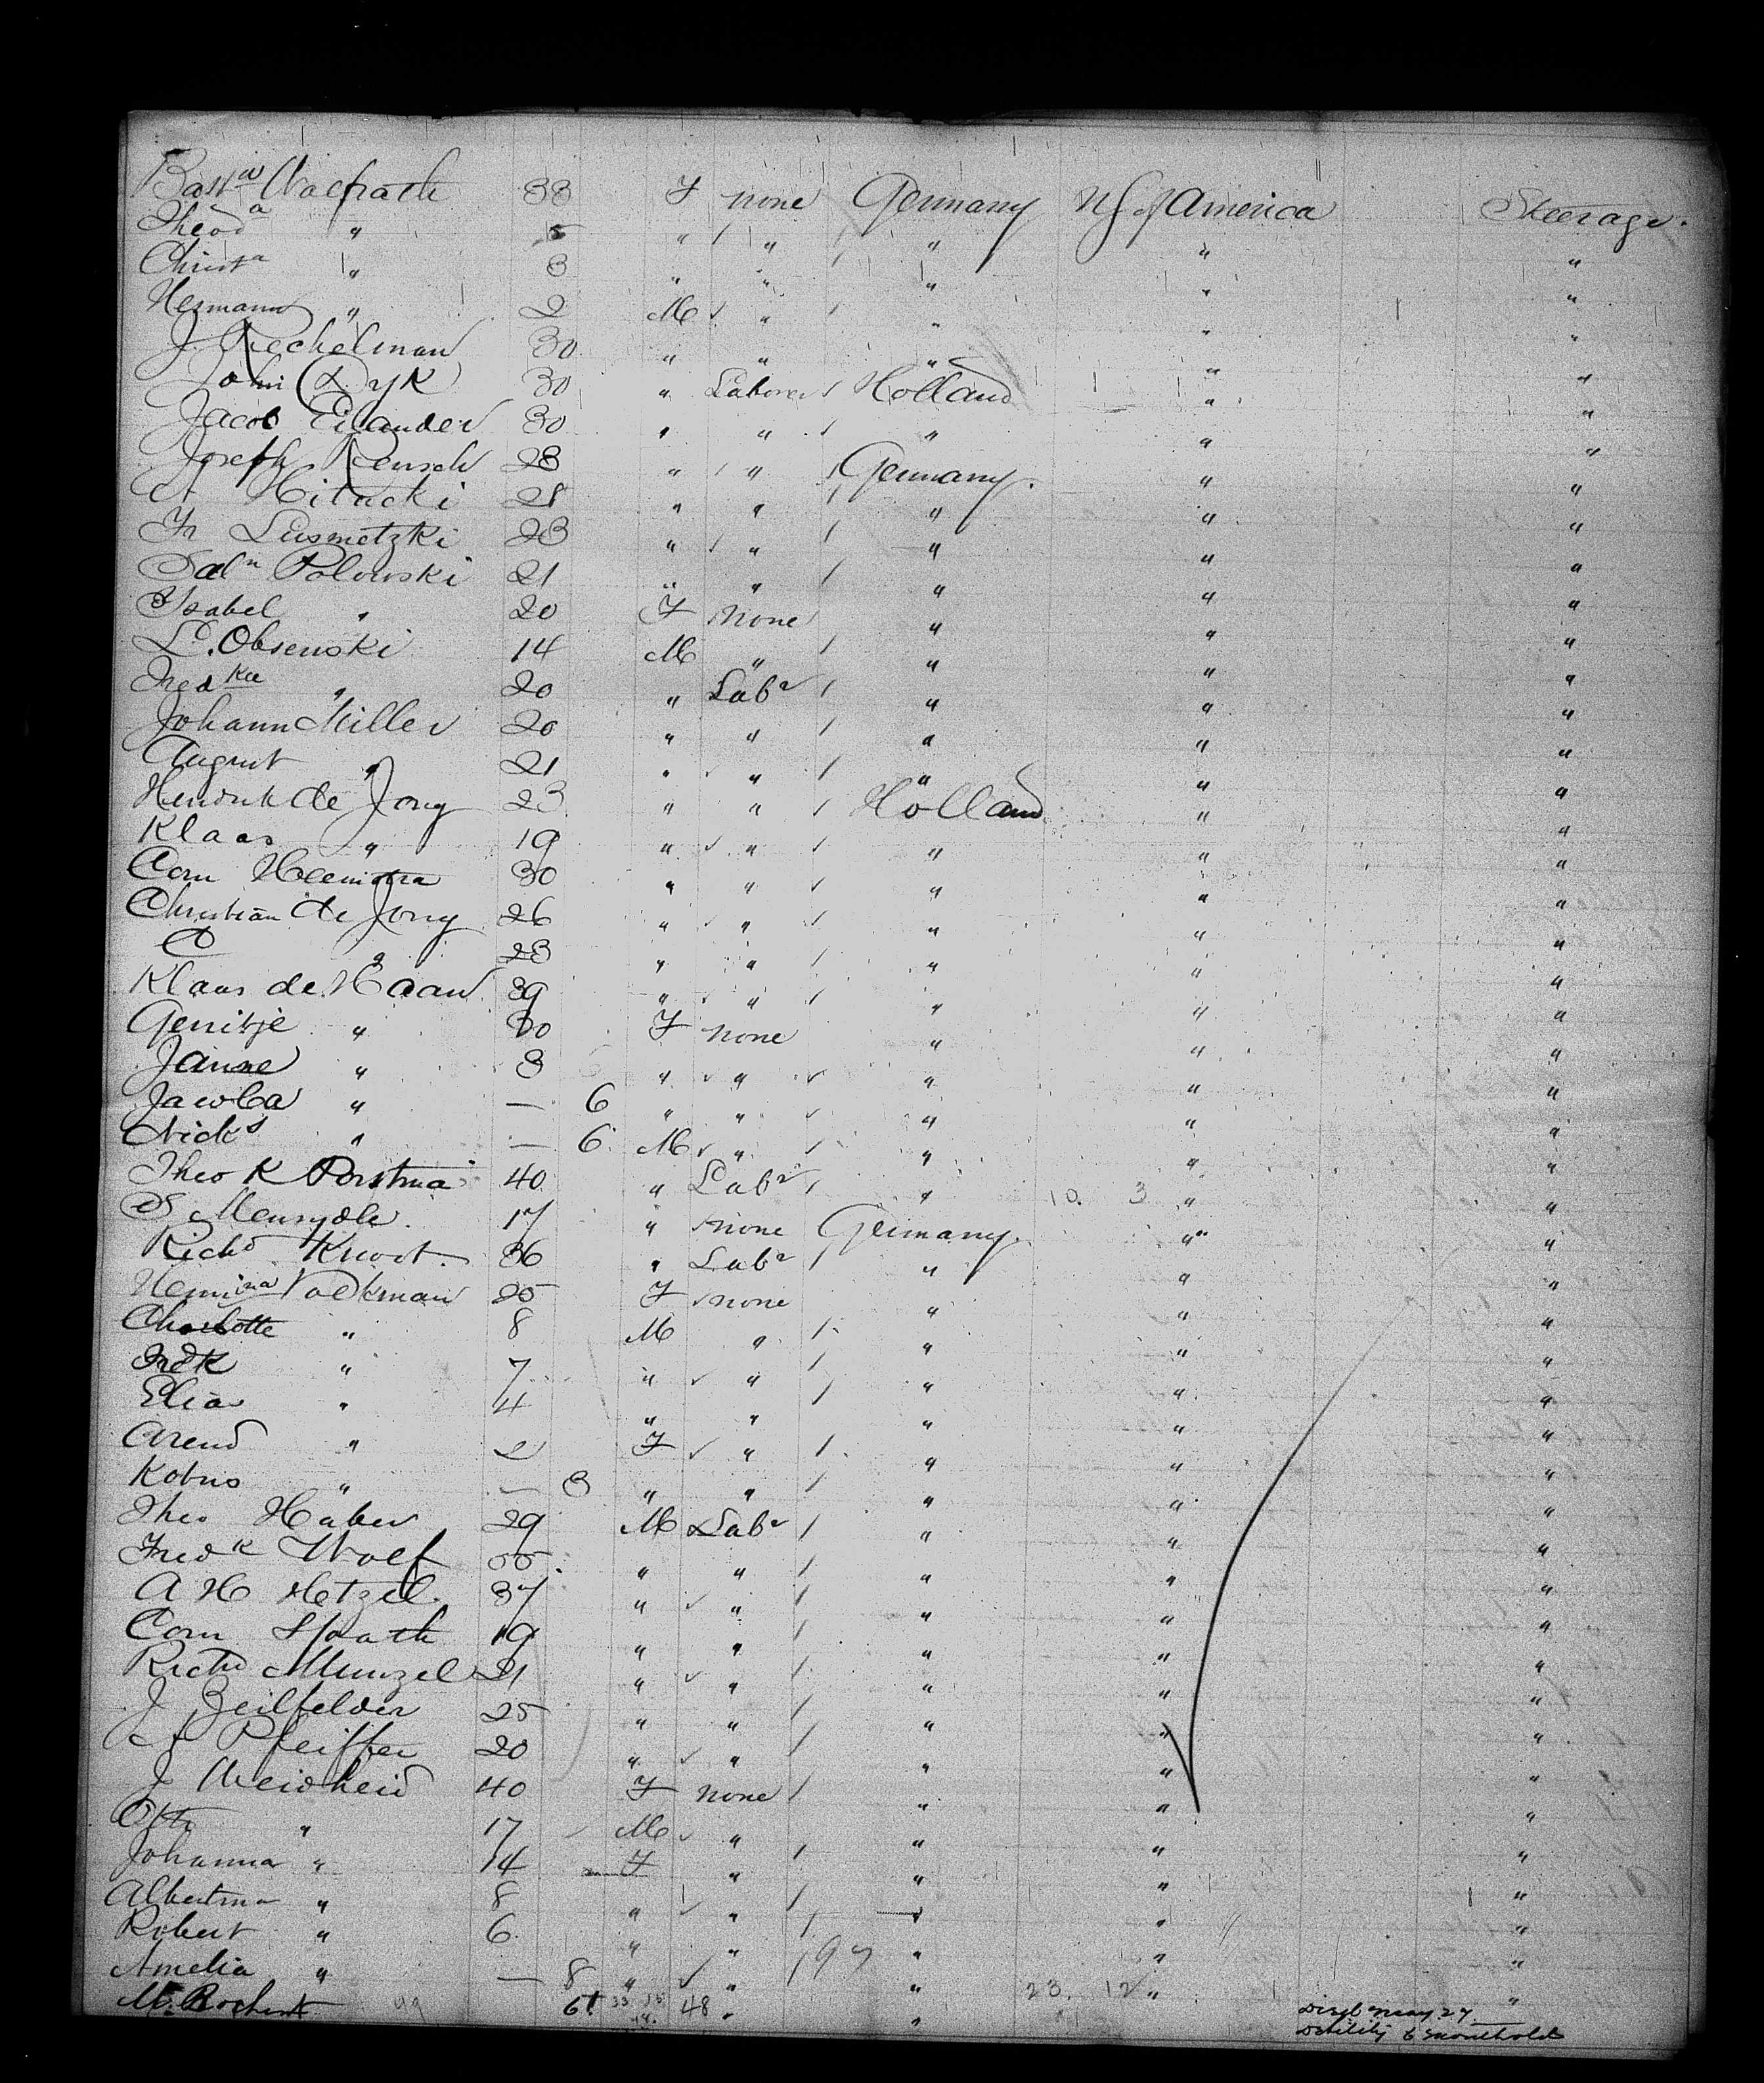 33 F none Germany US of America Steerage.
Theod a " 5 " " " " "
Christ a " 3 " " " " "
Hermann " 2 M " " " "
J. Rechelman 30 " " " " "
John Dyk 30 " Laborer Holland " "
Jacob 30 " " " " "
Joseph Rensch 28 " " Germany. " "
28 " " " " "
Fr 23 " " " " "
Sal n Polowski 21 " " " " "
Isabel " 20 F none " " "
L. Obsenski 14 M " " " "
Fred ka " 20 " Lab r " " "
Johann Miller 20 " " " " "
August " 21 " " " " "
Hendrik de Jong 23 " " Holland " "
Klaas " 19 " " " " "
Corn 30 " " " " "
Christian de Jong 26 " " " " "
C " 23 " " " " "
Klaas de Haan 39 " " " " "
Gerritje " 30 F none " " "
Janne " 3 " " " " "
Jacoba " — 6 " " " " "
Nick s " — 6 M " " " "
Theo K Postma 40 " Lab r " 10. 3 " "
S 17 " none Germany. " "
Rich d Knoot. 36 " Lab r " " "
Hemina Volkman 25 F none " " "
Charlotte " 8 M " " " "
Fredk " 7 " " " " "
Elia " 4 " " " " "
Arend " 2 F " " " "
Kobus " — 3 " " " " "
Theo Huber 29 M Lab r " " "
Fred k Wolf 55 " " " " "
A H Hetzel 37 " " " " "
Corn Spath 19 " " " " "
Rich d Munzel 21 " " " " "
J Zeilfelder 25 " " " " "
A Pfeiffer 20 " " " " "
J Weidheid 40 F none " " "
Otto " 17 M " " " "
Johanna " 14 F " " " "
Albertina " 8 " " " " "
Robert " 6 " " " " "
Amelia " — 8 " " 197 " 23. 12 " "
M. 49 6! 33 15 48 " "
Died May 27
Debility 6 months old